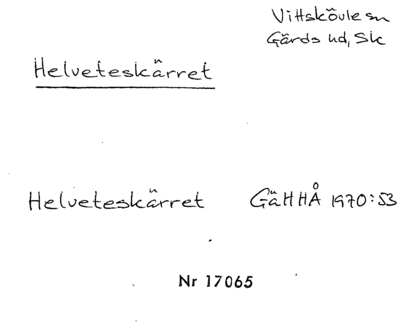 Vittskövle sn
Gärds hd, Sk
Helveteskärret
Helveteskärret GäHHÅ 1970:53
Nr 17065